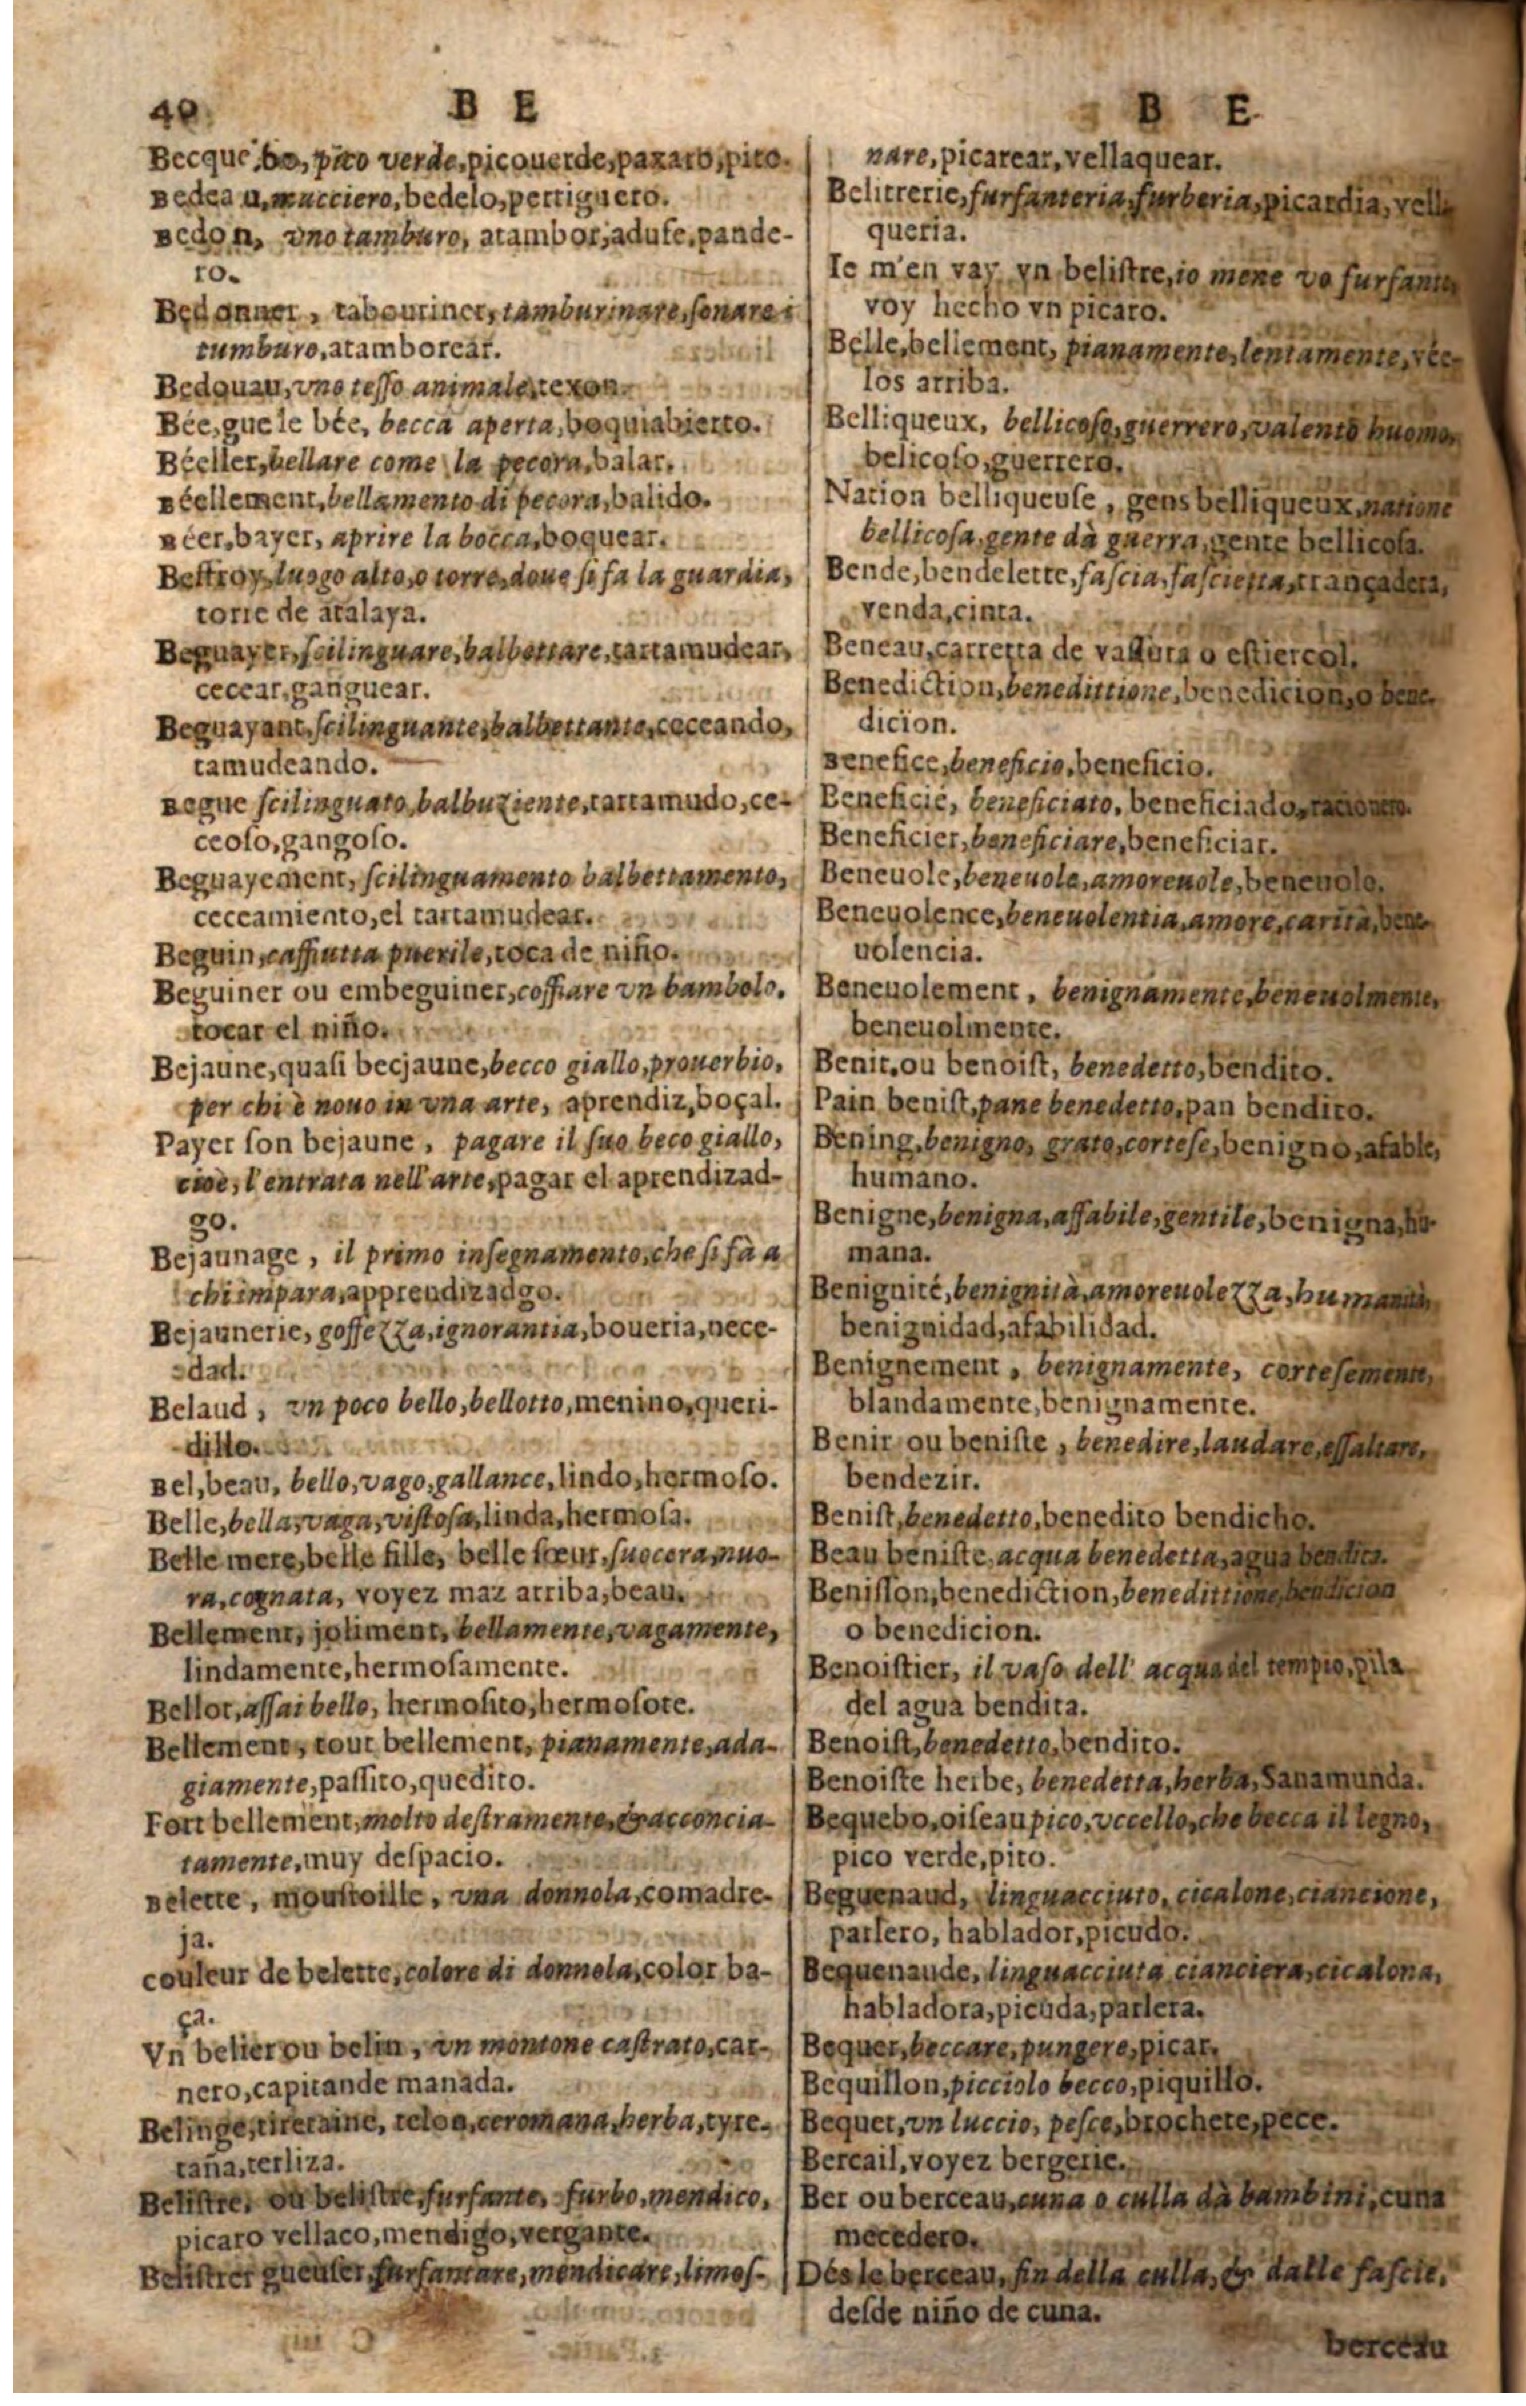 40 B E
Becque bo, pico verde, picouerde, paxaro, pito.
Bedeau, mucciero, bedelo, pertiguero.
Bedon, vno tamburo, atambor, adufe, pande-
ro.
Bedonner, tabouriner, tamburinare, sonare i
tumburo, atamborear.
Bedouau, vno tesso animale, texon.
Bée, gue le bée, becca aperta, boquiabierto.
Béeller, bellare come la pecora, balar.
Béellement, bellamento di pecora, balido.
Béer, bayer, aprire la bocca, boquear.
Beffroy, luogo alto, o torre, doue si fa la guardia,
torre de atalaya.
Beguayer, scilinguare, balbettare, tartamudear,
cecear, ganguear.
Beguayant, scilinguante, balbettante, ceceando,
tamudeando.
Begue scilinguato, balbuziente, tartamudo, ce-
ceoso, gangoso.
Beguayement, scilinguamento balbettamento,
ceceamiento, el tartamudear.
Beguin, caffiutta puerile, toca de niño.
Beguiner ou embeguiner, coffiare vn bambolo.
tocar el niño.
Bejaune, quasi becjaune, becco giallo, prouerbio,
per chi è nouo in vna arte, aprendiz, boçal.
Payer son bejaune, pagare il suo beco giallo,
cioè, l'entrata nell'arte, pagar el aprendizad-
go.
Bejaunage, il primo insegnamento, che si fà a
chi impara, apprendizadgo.
Bejaunerie, goffezza, ignorantia, boueria, nece-
dad.
Belaud, vn poco bello, bellotto, menino, queri-
dillo.
Bel, beau, bello, vago, gallance, lindo, hermoso.
Belle, bella, vaga, vistosa, linda, hermosa.
Belle mere, belle fille, belle sœur, suocera, nuo-
ra, cognata, voyez maz arriba, beau.
Bellement, joliment, bellamente, vagamente,
lindamente, hermosamente.
Bellot, assai bello, hermosito, hermosote.
Bellement, tout bellement, pianamente, ada-
giamente, passito, quedito.
Fort bellement, molto destramente, & acconcia-
tamente, muy despacio.
Belette, moustoille, vna donnola, comadre-
ja.
couleur de belette, colore di donnola, color ba-
ça.
Vn belier ou belin, vn montone castrato, car-
nero, capitande manada.
Belinge, tiretaine, telon, ceromana, herba, tyre-
taña, terliza.
Belistre, ou belistre, furfante, furbo, mendico,
picaro vellaco, mendigo, vergante.
Belistrer gueuser, furfantare, mendicare, limos-
B E
nare, picarear, vellaquear.
Belitrerie, furfanteria, furberia, picardia, vella
queria.
Ie m'en vay vn belistre, io mene vo furfante,
voy hecho vn picaro.
Belle, bellement, pianamente, lentamente, vée-
los arriba.
Belliqueux, bellicoso, guerrero, valento huomo,
belicoso, guerrero.
Nation belliqueuse, gens belliqueux, natione
bellicosa, gente dà guerra, gente bellicosa.
Bende, bendelette, fascia, fascietta, trançadera,
venda, cinta.
Beneau, carretta de vassura o estiercol.
Benediction, benedittione, benedicion, o bene-
dicion.
Benefice, beneficio, beneficio.
Beneficié, beneficiato, beneficiado, racionero.
Beneficier, beneficiare, beneficiar.
Beneuole, beneuole, amoreuole, beneuolo.
Beneuolence, beneuolentia, amore, carità, bene-
uolencia.
Beneuolement, benignamente, beneuolmente,
beneuolmente.
Benit, ou benoist, benedetto, bendito.
Pain benist, pane benedetto, pan bendito.
Bening, benigno, grato, cortese, benigno, afable,
humano.
Benigne, benigna, affabile, gentile, benigna, hu-
mana.
Benignité, benignità, amoreuolezza, humanità,
benignidad, afabilidad.
Benignement, benignamente, cortesemente,
blandamente, benignamente.
Benir ou beniste, benedire, laudare, essaltare,
bendezir.
Benist, benedetto, benedito bendicho.
Beau beniste, acqua benedetta, agua bendita.
Benisson, benediction, benedittione, bendicion
o benedicion.
Benoistier, il vaso dell' acqua del tempio, pila
del agua bendita.
Benoist, benedetto, bendito.
Benoiste herbe, benedetta, herba, Sanamunda.
Bequebo, oiseau pico, vccello, che becca il legno,
pico verde, pito.
Beguenaud, linguacciuto, cicalone, ciancione,
parlero, hablador, picudo.
Bequenaude, linguacciuta cianciera, cicalona,
habladora, picuda, parlera.
Bequer, beccare, pungere, picar.
Bequillon, picciolo becco, piquillo.
Bequet, vn luccio, pesce, brochete, pece.
Bercail, voyez bergerie.
Ber ou berceau, cuna o culla dà bambini, cuna
mecedero.
Dés le berceau, fin della culla, & dalle fascie,
desde niño de cuna.
berceau